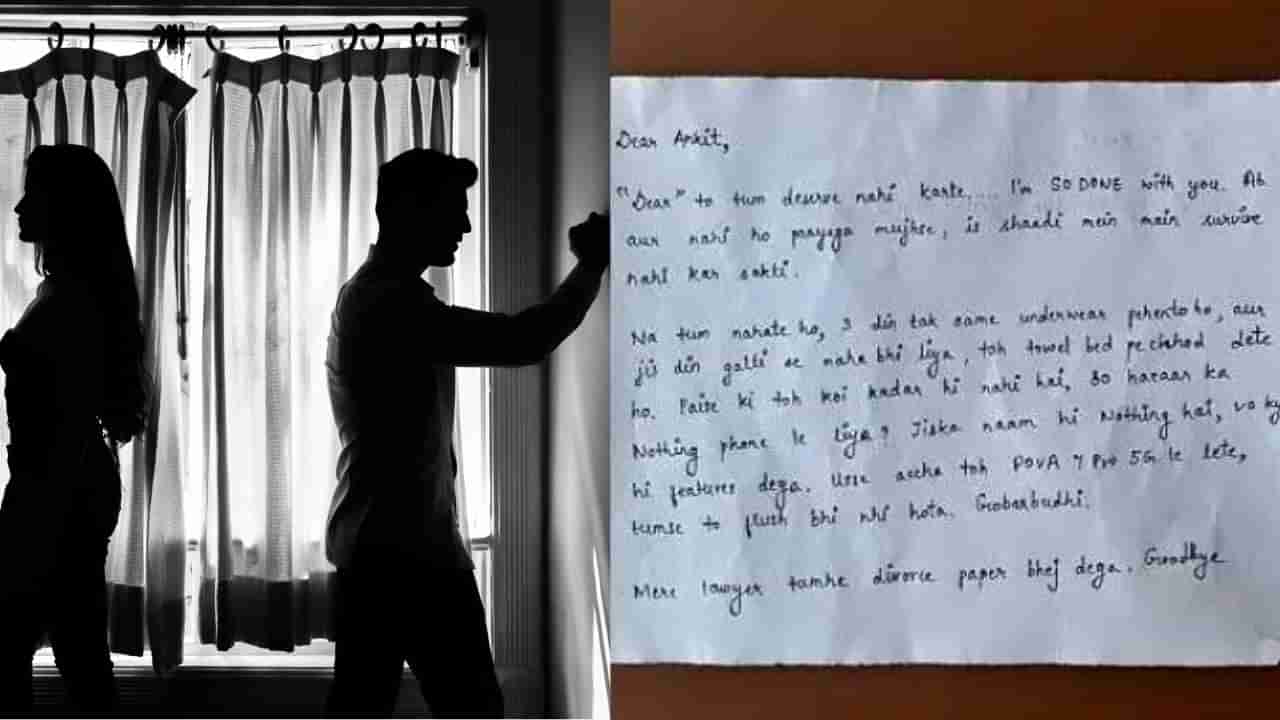 Dear Ankit,
"Dear" to tum deserve nahi karte.... I'm SO DONE with you. Ab
aur nahi ho payega mujhse, is shaadi mein main survive
nahi kar sakti.
Na tum nahate ho, 3 din tak same underwear pehente ho, aur
jis din galti se naha bhi liya, toh towel bed pe chhod dete
ho. Paise ki toh koi kadar hi nahi hai, 30 hazaar ka
Nothing phone le liya? Jiska naam hi Nothing hai, vo ky
hi features dega. Usse accha toh POVA 7 Pro 5G le lete,
tumse to flush bhi nhi hota. Gobarbudhi.
Mere lawyer tumhe divorce paper bhej dega. Goodbye